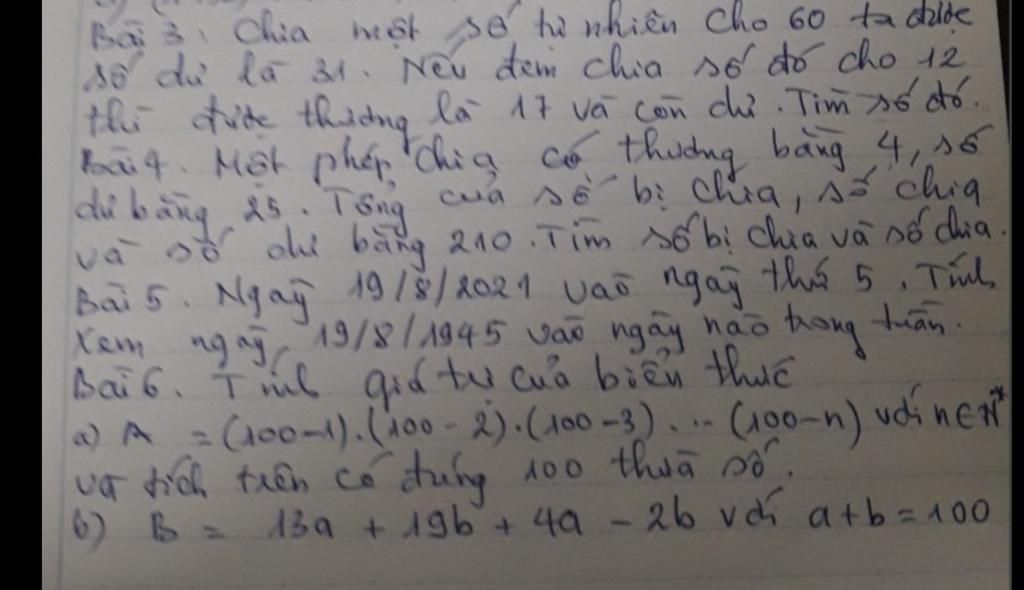 Bài 3. Chia một số tự nhiên cho 60 ta được
số dư là 31. Nếu đem chia số đó cho 12
thì được thương là 17 và còn dư. Tìm số đó.
Bài 4. Một phép chia có thương bằng 4, số
dư bằng 25. Tổng của số bị chia, số chia
và số dư bằng 210. Tìm số bị chia và số chia.
Bài 5. Ngày 19/8/2021 vào ngày thứ 5. Tính
xem ngày 19/8/1945 vào ngày nào trong tuần.
Bài 6. Tính giá trị của biểu thức
a) A = (100-1).(100-2).(100-3)... (100-n) với n∈N*
và tích trên có đúng 100 thừa số.
b) B = 13a + 19b + 4a - 2b với a+b=100